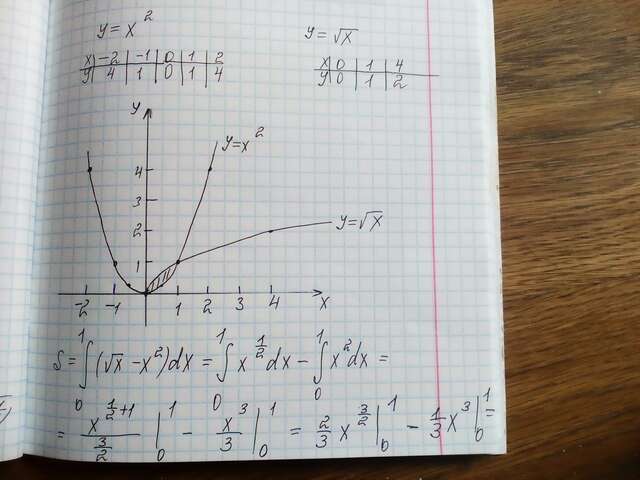 y = x² y = √x
x | -2 | -1 | 0 | 1 | 2 x | 0 | 1 | 4
y | 4 | 1 | 0 | 1 | 4 y | 0 | 1 | 2
y
y=x²
4
3
2
y=√x
1
-2 -1 0 1 2 3 4 x
S = ∫₀¹ (√x - x²)dx = ∫₀¹ x^(1/2) dx - ∫₀¹ x² dx =
= x^(1/2+1)/(3/2) |₀¹ - x³/3 |₀¹ = 2/3 x^(3/2) |₀¹ - 1/3 x³ |₀¹ =